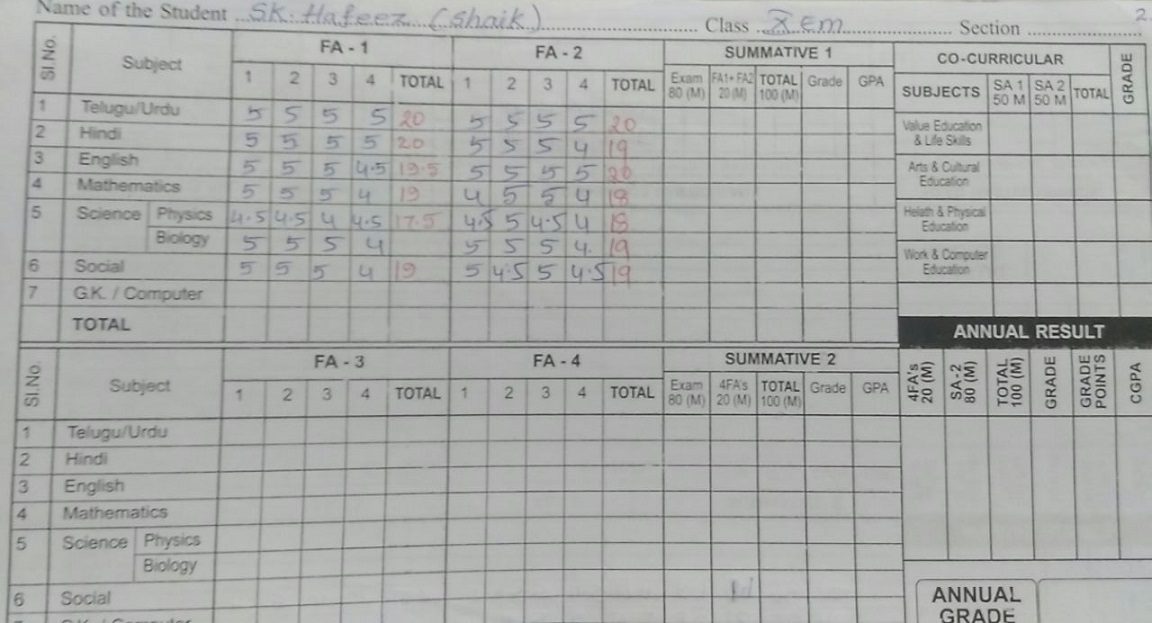 Name of the Student SK. Hafeez (Shaik) Class X EM Section 2
Sl.No. Subject FA - 1 FA - 2 SUMMATIVE 1 CO-CURRICULAR GRADE
1 2 3 4 TOTAL 1 2 3 4 TOTAL Exam 80 (M) FA1+ FA2 20 (M) TOTAL 100 (M) Grade GPA SUBJECTS SA 1 50 M SA 2 50 M TOTAL
1 Telugu/Urdu 5 5 5 5 20 5 5 5 5 20 Value Education & Life Skills
2 Hindi 5 5 5 5 20 5 5 5 4 19
3 English 5 5 5 4.5 19.5 5 5 5 5 20 Arts & Cultural Education
4 Mathematics 5 5 5 4 19 4 5 5 4 18
5 Science Physics 4.5 4.5 4 4.5 17.5 4.5 5 4.5 4 18 Helath & Physical Education
Biology 5 5 5 4 5 5 5 4. 19
6 Social 5 5 5 4 19 5 4.5 5 4.5 19 Work & Computer Education
7 G.K. / Computer
TOTAL ANNUAL RESULT
Sl.No Subject FA - 3 FA - 4 SUMMATIVE 2 4FA's 20 (M) SA-2 80 (M) TOTAL 100 (M) GRADE GRADE POINTS CGPA
1 2 3 4 TOTAL 1 2 3 4 TOTAL Exam 80 (M) 4FA's 20 (M) TOTAL 100 (M) Grade GPA
1 Telugu/Urdu
2 Hindi
3 English
4 Mathematics
5 Science Physics
Biology
6 Social ANNUAL GRADE
G.K. / Computer